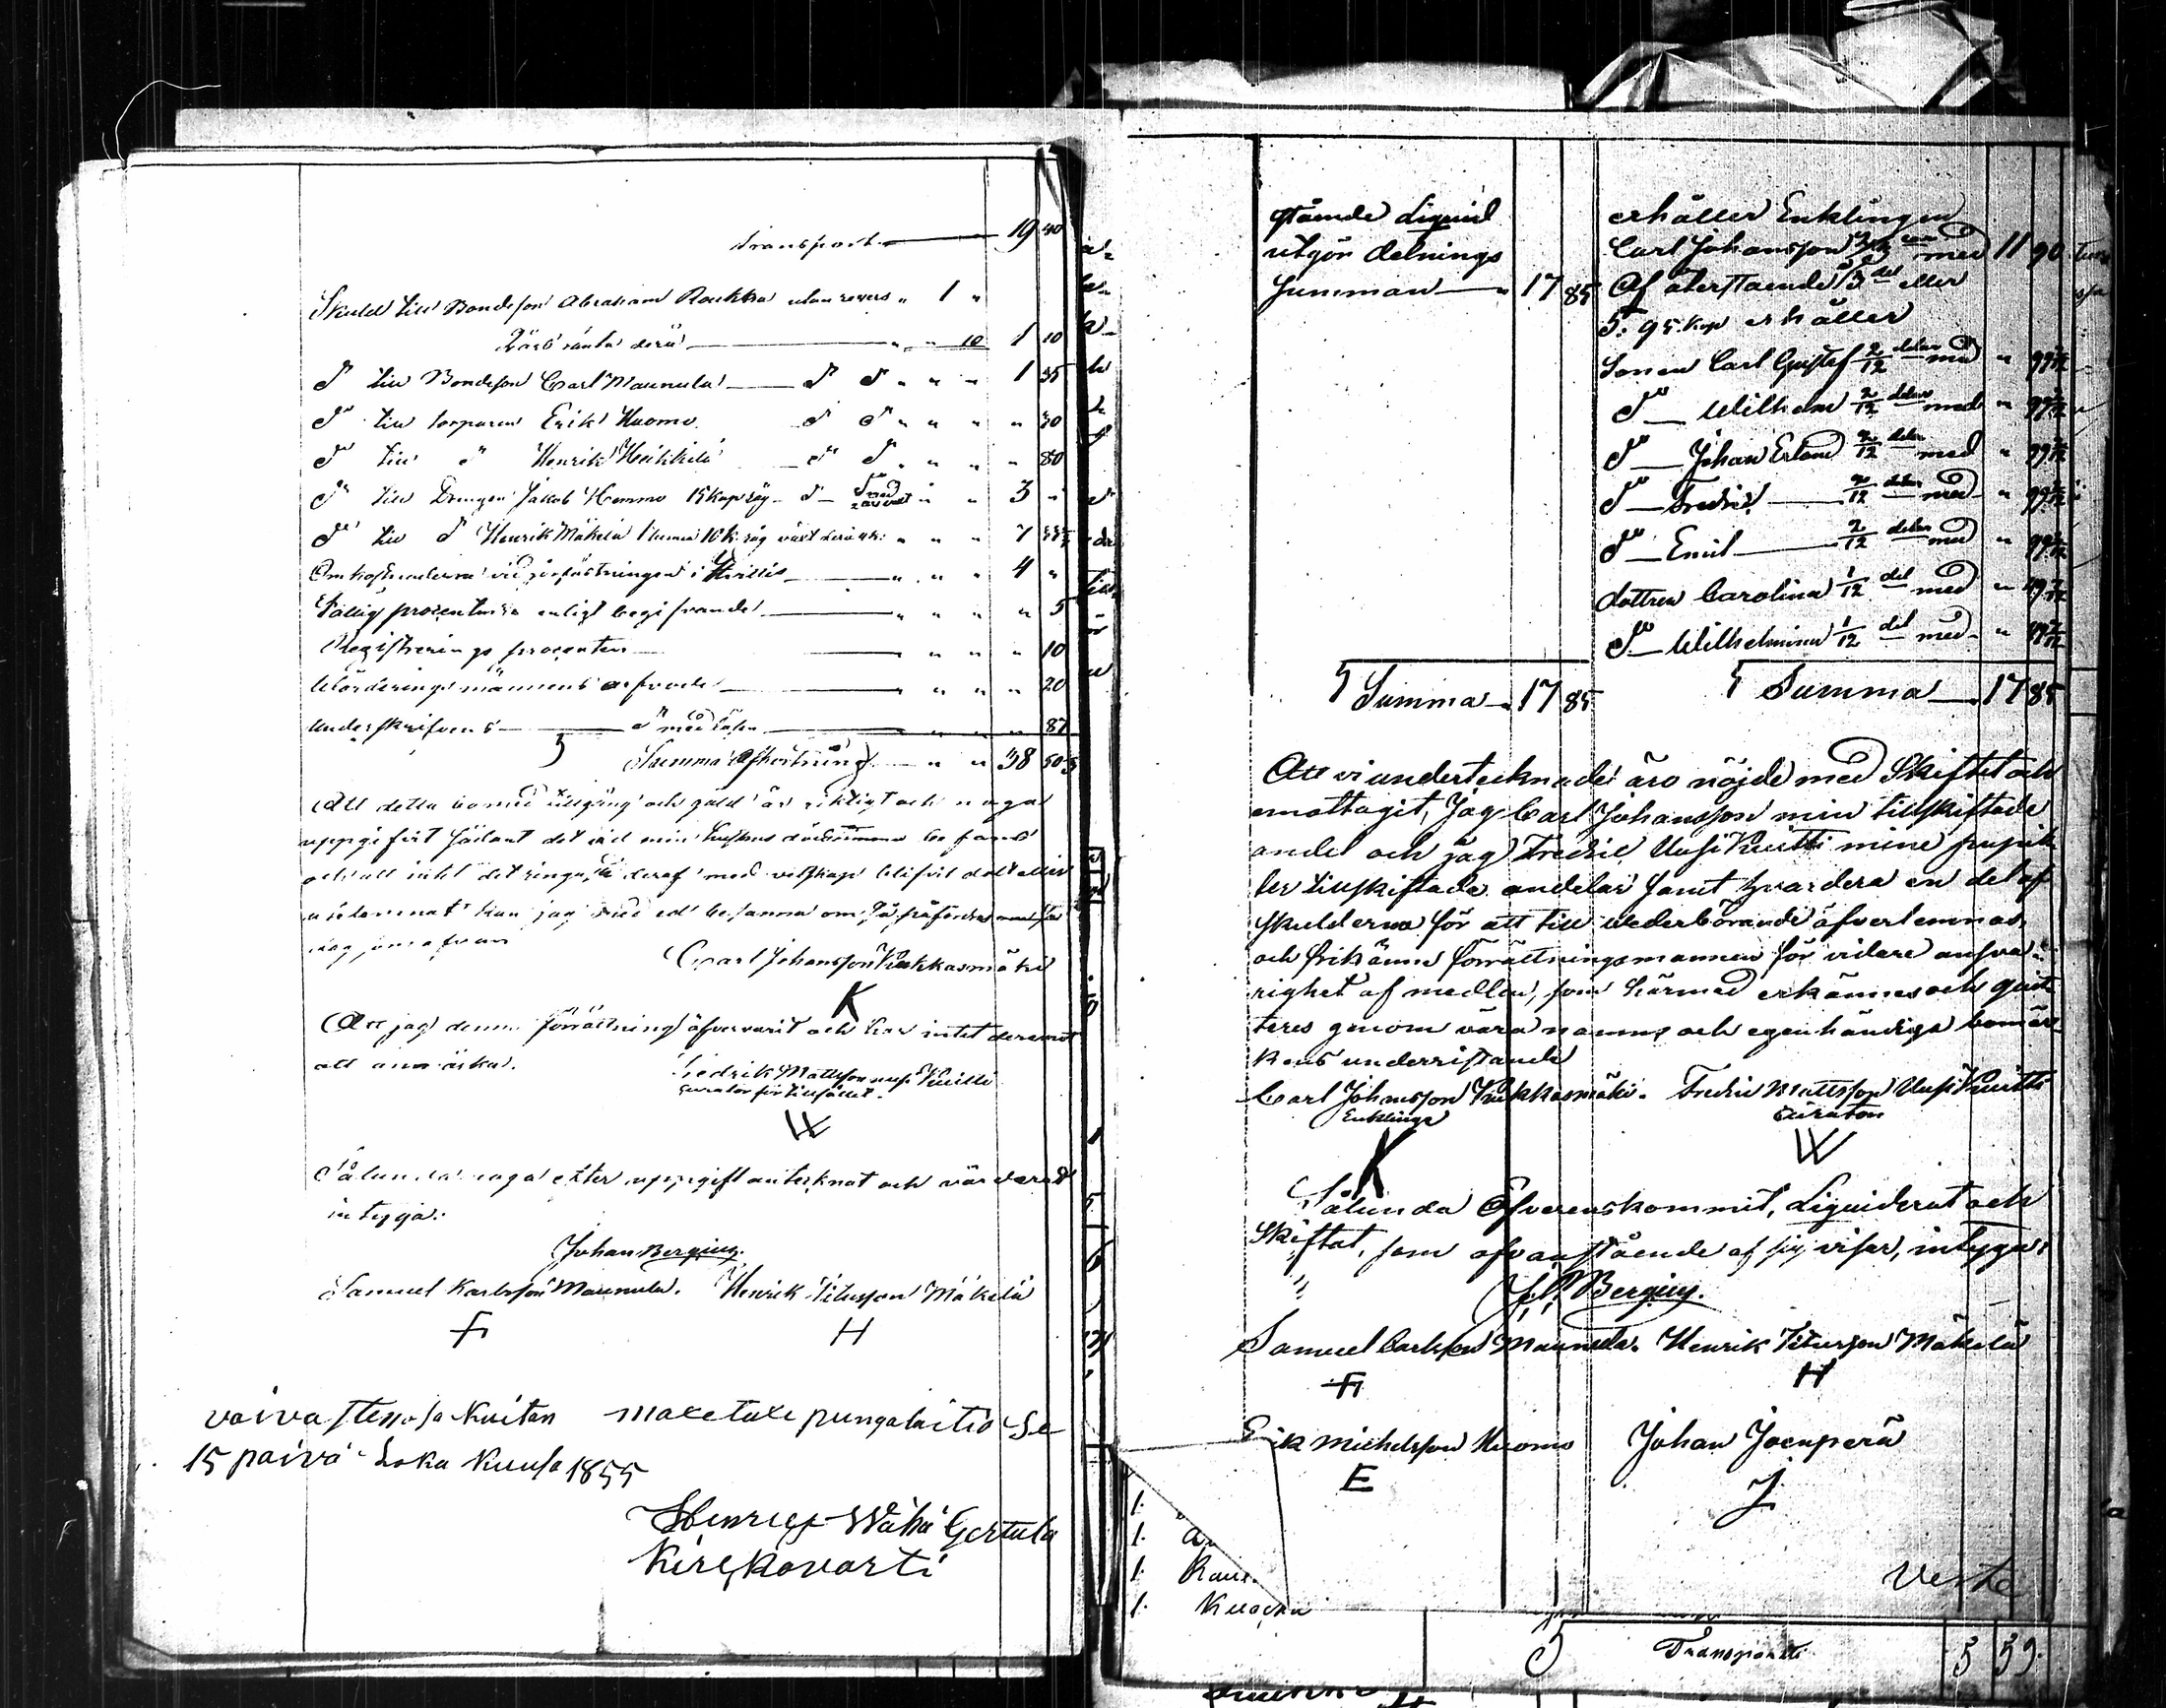 Transport 19 40
Skuld till Bondeson Abraham Raukka utan revers " 1 "
Års ränta derå " " 10 1 10
d° till Bondeson Carl Maunula d° d° " " " 1 35
d° till torparen Erik Huomo d° d° " " " " 30
d° till d° Henrik Heikkilä d° d° " " " " 80
d° till Drengen Jakob Hemmo 15 kap råg d° " " 3 "
d° till d° Henrik Mäkelä 1 tunna 10 k. råg " " " 7
Omkostnaderna vid i " " " 4 "
Fattig procenterna enligt " " " " 5
Registrerings procenten " " " 10
Värderingsmännens arfvode " " " " 20
Underskrifvens d° med " " " " 87
Summa Afkortning " " 38 50
Att detta bo med tillgång och gäld är riktigt och noga
uppgifvit sådant det vid min hustrus befans
och att intet det ringaste deraf med vetskap blifvit dolt eller
utelemnat kan jag med ed besanna om så påfordras
dag som ofvan
Carl Johansson Kukkasmäki
K
Att jag denna förrättning öfvervarit och har intet deremot
att anmärka.
Fredrik Mattsson Uusi Kuitti
curator för tillfället.
Sålunda noga efter uppgift antecknat och värderat
intyga:
Johan Bergius.
Samuel Karlsson Maunula. Henrik Titusson Mäkelä
H
vaivasten osa Kuitan
15 päivä Loka Kuusa 1855
Henrich Wähä Gertula
Kirckovarti
stående Liquid
utgör delnings
Summan " 17 85
erhåller Enklingen
Carl Johansson 2/3 med 11 90
Af återstående 1/3 del eller
5: 95 kop erhåller
Sonen Carl Gustaf 2/12 delar med " 99 2/12
d° Wilhelm 2/12 delar med " 99 2/12
d° Johan Erland 2/12 delar med " 99 2/12
d° Fredric 2/12 delar med " 99 2/12
d° Emil 2/12 delar med " 99 2/12
dottren Carolina 1/12 del med " 49 7/12
d° Wilhelmina 1/12 del med " 49 7/12
Summa 17 85
Summa 17 85
Att vi undertecknade äro nöjde med Skiftet och
emottagit, Jag Carl Johansson min tillskiftade
andel och jag Fredric Uusi Kuitti mine pupil-
lers tillskiftade andelar samt hvardera en del af
skulderna för att till wederbörande öfverlemnas,
och frikänna förrättningsmannen för vidare ansva-
righet af medlen, som härmed erkännes och quit-
teres genom våra namns och egenhändiga bomär-
kens underristande
Carl Johansson Kukkasmäki. Fredric Mattsson Uusi Kuitti
Enklinge Curator
K
Sålunda Öfverenskommit, Liquiderat och
Skiftat, som ofvanstående af sig visar, intyga:
Bergius.
Samuel Carlsson Maunula. Henrik Titusson Mäkelä
H
Erik Michelsson Huomo Johan Joenperä
E J
1.
1.
1. Rau
1.
Transport 5 39